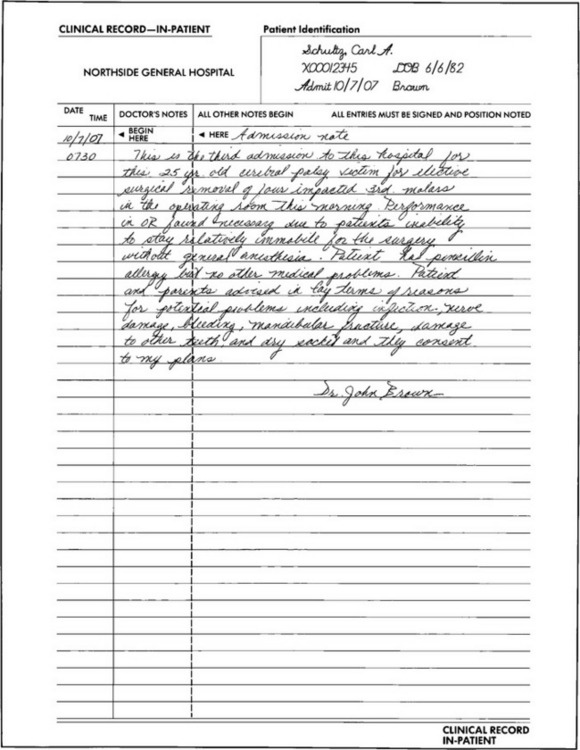 CLINICAL RECORD—IN-PATIENT
Patient Identification
Schultz, Carl A.
X00012345 DOB 6/6/82
NORTHSIDE GENERAL HOSPITAL
Admit 10/7/07 Brown
DATE TIME DOCTOR'S NOTES ALL OTHER NOTES BEGIN ALL ENTRIES MUST BE SIGNED AND POSITION NOTED
10/7/07 ◄ BEGIN HERE ◄ HERE Admission note
0730 This is the third admission to this hospital for
this 25 yr old cerebral palsy victim for elective
surgical removal of four impacted 3rd molars
in the operating room this morning. Performance
in OR found necessary due to patients inability
to stay relatively immobile for the surgery
without general anesthesia. Patient has penicillin
allergy but no other medical problems. Patient
and parents advised in lay terms of reasons
for potential problems including infection, nerve
damage, bleeding, mandibular fracture, damage
to other teeth and dry socket and they consent
to my plans
Dr. John Brown
CLINICAL RECORD
IN-PATIENT